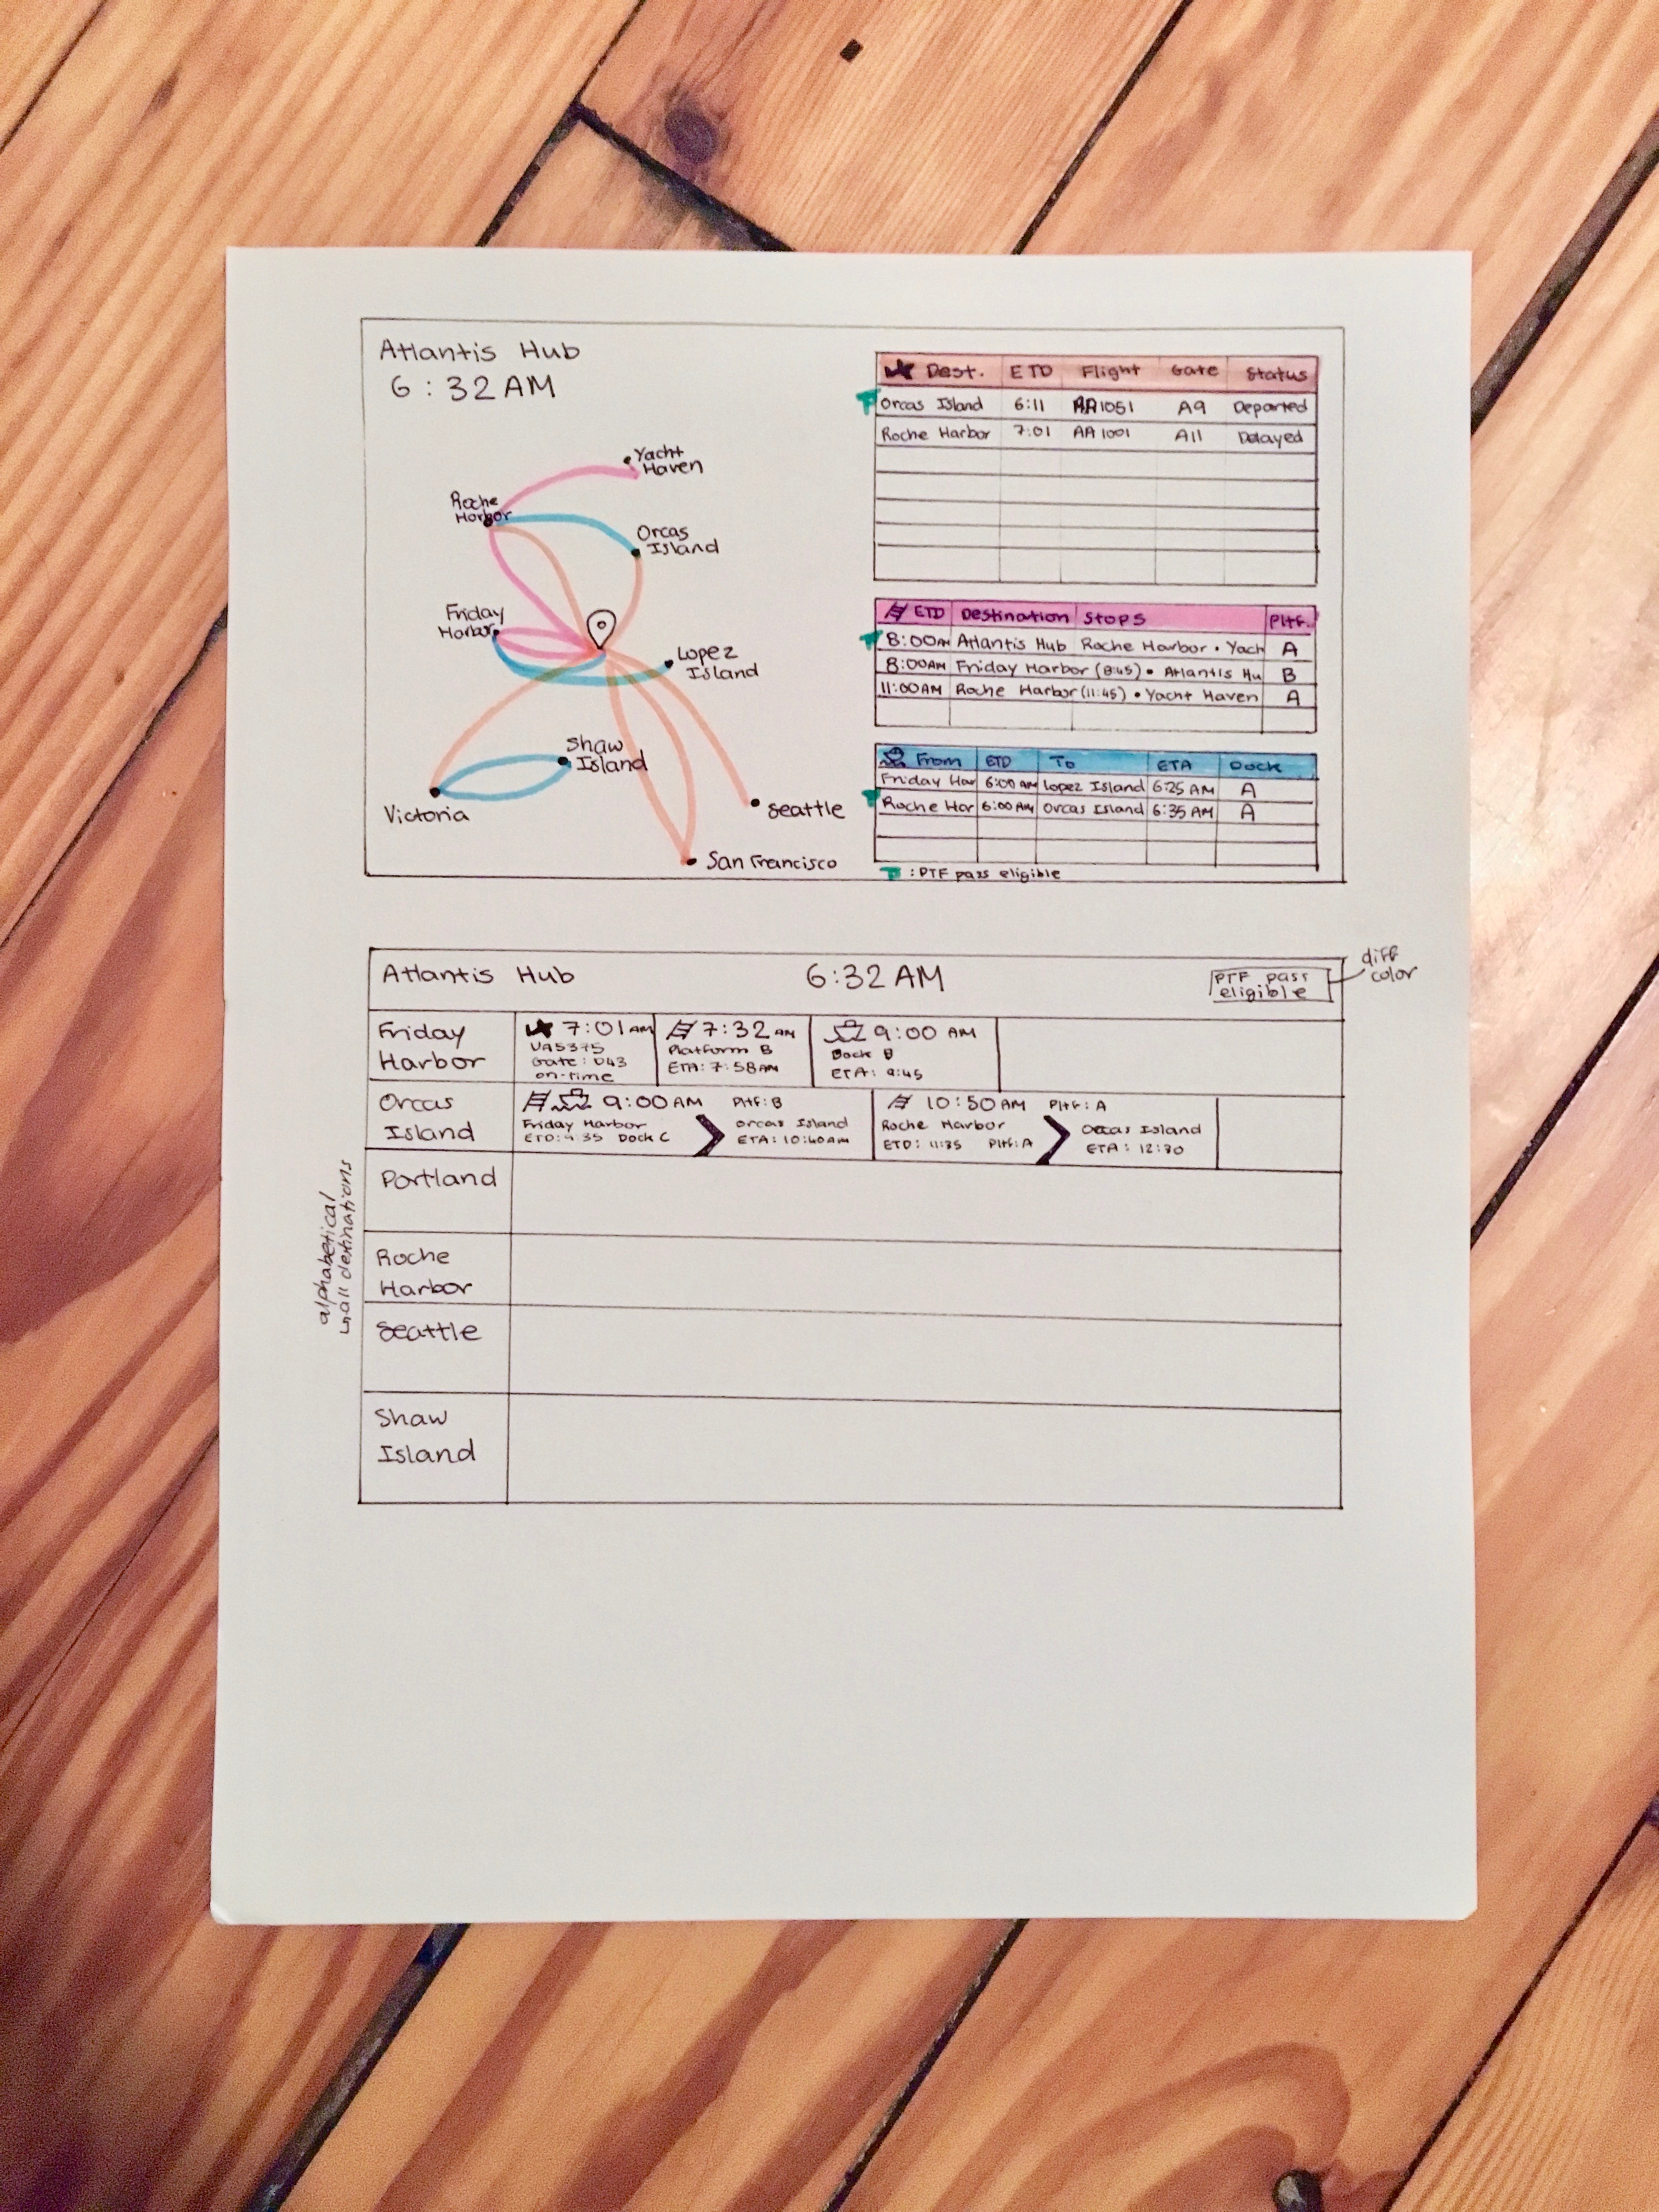 Atlantis Hub
6:32 AM
Yacht
Haven
Roche
Harbor
Orcas
Island
Friday
Harbor
Lopez
Island
Shaw
Island
Victoria
Seattle
San Francisco
Dest. ETD Flight Gate Status
Orcas Island 6:11 AA1051 A9 Departed
Roche Harbor 7:01 AA1001 A11 Delayed
ETD Destination Stops Pltf.
8:00AM Atlantis Hub Roche Harbor • Yach A
8:00AM Friday Harbor (8:45) • Atlantis Hu B
11:00AM Roche Harbor (11:45) • Yacht Haven A
From ETD To ETA Dock
Friday Har 6:00 AM Lopez Island 6:25 AM A
Roche Har 6:00AM Orcas Island 6:35 AM A
: PTF pass eligible
Atlantis Hub 6:32 AM
PTF pass
eligible
diff
color
Friday
Harbor
7:01 AM
UA5375
Gate: D43
on-time
7:32 AM
Platform B
ETA: 7:58AM
9:00 AM
Dock B
ETA: 9:45
Orcas
Island
9:00AM Pltf: B
Friday Harbor
ETD: 9:35 Dock C
Orcas Island
ETA: 10:40am
10:50AM Pltf: A
Roche Harbor
ETD: 11:35 Pltf: A
Orcas Island
ETA: 12:30
Portland
Roche
Harbor
Seattle
Shaw
Island
alphabetical
all destinations